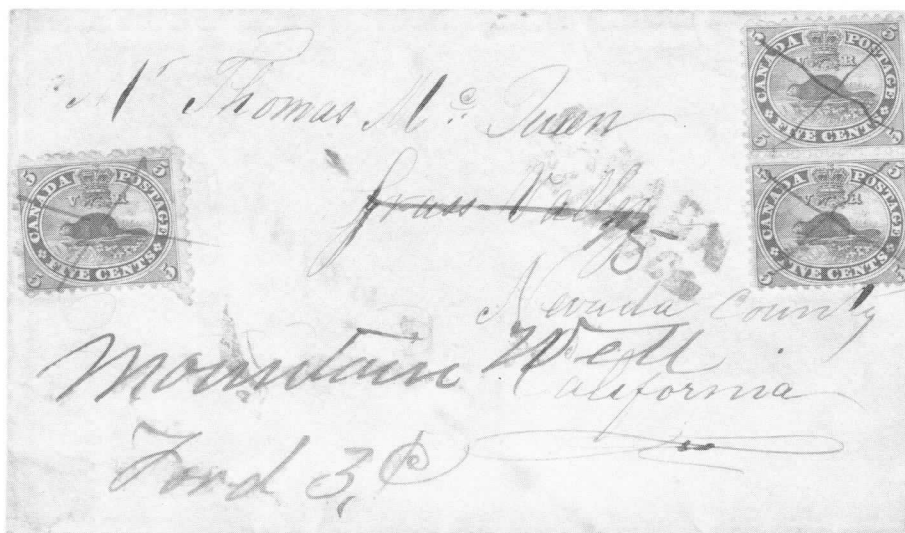 Mr Thomas Mc. Queen
Grass Valley
Nevada County
California
Mountain Well
Ford 3,¢
CANADA POSTAGE
V R
FIVE CENTS
5 5 5 5
CANADA POSTAGE
V R
FIVE CENTS
5 5 5 5
CANADA POSTAGE
V R
FIVE CENTS
5 5 5 5